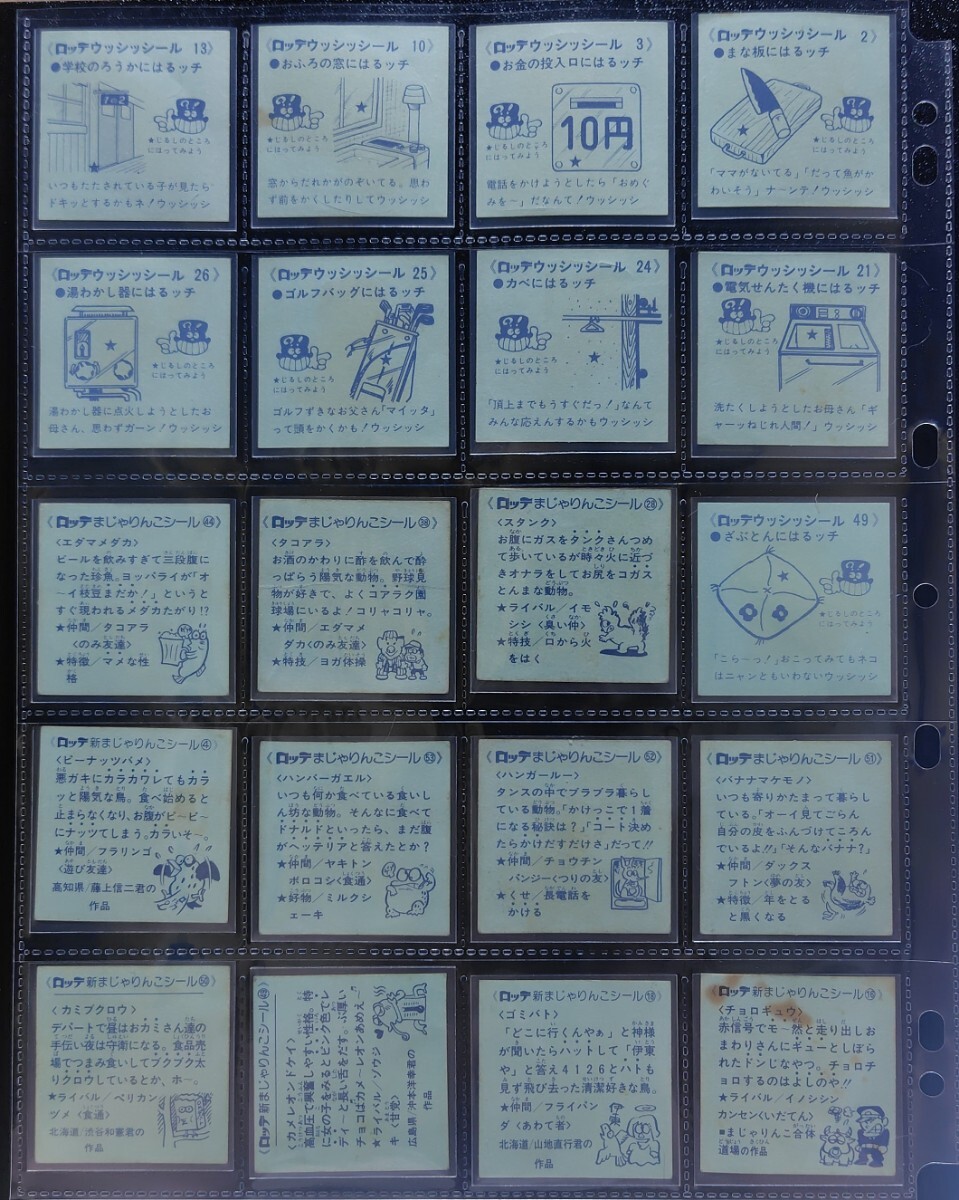 《ロッテウッシッシール 13》
●学校のろうかにはるッチ
1-2
★じるしのところ
にはってみよう
いつもたたされている子が見たら
ドキッとするかもネ!ウッシッシ
《ロッテウッシッシール 10》
●おふろの窓にはるッチ
★じるしのところ
にはってみよう
窓からだれかがのぞいてる。思わ
ず前をかくしたりしてウッシッシ
《ロッテウッシッシール 3》
●お金の投入口にはるッチ
10円
★じるしのところ
にはってみよう
電話をかけようとしたら「おめぐ
みを-」だなんて!ウッシッシ
《ロッテウッシッシール 2》
●まな板にはるッチ
★じるしのところ
にはってみよう
「ママがないてる」「だって魚がか
わいそう」ナーンテ!ウッシッシ
《ロッテウッシッシール 26》
●湯わかし器にはるッチ
★じるしのところ
にはってみよう
湯わかし器に点火しようとしたお
母さん、思わずガーン!ウッシッシ
《ロッテウッシッシール 25》
●ゴルフバッグにはるッチ
★じるしのところ
にはってみよう
ゴルフずきなお父さん「マイッタ」
って頭をかくかも!ウッシッシ
《ロッテウッシッシール 24》
●カベにはるッチ
★じるしのところ
にはってみよう
「頂上までもうすぐだっ!」なんて
みんな応えんするかもウッシッシ
《ロッテウッシッシール 21》
●電気せんたく機にはるッチ
★じるしのところ
にはってみよう
洗たくしようとしたお母さん「ギ
ャーッねじれ人間!」ウッシッシ
《ロッテまじゃりんこシール㊹》
〈エダマメダカ〉
ビールを飲みすぎて三段腹に
なった珍魚。ヨッパライが「オ
〜イ枝豆まだか!」というと
すぐ現われるメダカたがり!?
★仲間/タコアラ
〈のみ友達〉
★特徴/マメな性
格
《ロッテまじゃりんこシール㊳》
〈タコアラ〉
お酒のかわりに酢を飲んで酔
っぱらう陽気な動物。野球見
物が好きで、よくコアラク園
球場にいるよ!コリャコリャ。
★仲間/エダマメ
ダカ〈のみ友達〉
★特技/ヨガ体操
《ロッテまじゃりんこシール㉘》
〈スタンク〉
お腹にガスをタンクさんつめ
て歩いているが時々火に近づ
きオナラをしてお尻をコガス
とんまな動物。
★ライバル/イモ
シシ〈臭い仲〉
★特技/口から火
をはく
《ロッテウッシッシール 49》
●ざぶとんにはるッチ
★じるしのところ
にはってみよう
「こらーっ!」おこってみてもネコ
はニャンともいわないウッシッシ
《ロッテ新まじゃりんこシール④》
〈ピーナッツバメ〉
悪ガキにカラカワレてもカラ
ッと陽気な鳥。食べ始めると
止まらなくなり、お腹がピーピ〜
にナッツてしまう。カラいそ〜。
★仲間/フラリンゴ
〈遊び友達〉
高知県/藤上信二君の
作品
《ロッテまじゃりんこシール㊾》
〈ハンバーガエル〉
いつも何か食べている食いし
ん坊な動物。そんなに食べて
ドナルドといったら、まだ腹
がヘッテリアと答えたとか?
★仲間/ヤキトン
ボロコシ〈食通〉
★好物/ミルクシ
ェーキ
《ロッテまじゃりんこシール㊾》
〈ハンガールー〉
タンスの中でブラブラ暮らし
ている動物。「かけっこで1着
になる秘訣は?」「コート決め
たらかけだすだけさ」だって!!
★仲間/チョウチン
パンジー〈つりの友〉
★くせ/長電話を
かける
《ロッテまじゃりんこシール》
〈バナナマケモノ〉
いつも寄りかたまって暮らし
ている。「オーイ見てごらん
自分の皮をふんづけてころん
でいるよ!!」「そんなバナナ?」
★仲間/ダックス
フトン〈夢の友〉
★特徴/年をとる
と黒くなる
《ロッテ新まじゃりんこシール㊿》
〈カミブクロウ〉
デパートで昼はおカミさん達の
手伝い夜は守衛になる。食品売
場でつまみ食いしてブクブク太
りクロウしているとか、ホー。
★ライバル/ペリカン
ヅメ〈食通〉
北海道/渋谷和憲君の
作品
《ロッテ新まじゃりんこシール㊾》
〈カメレオンドケイ〉
高血圧で興奮しやすい性格。特
に女の子をみるとピンク色でレ
ディーと長い舌をだす。ぶ厚い
チョコはカメ・レオンあめえ。
★ライバル/ゾウジ
キ〈甘党〉
広島県/沖本洋幸君の
作品
《ロッテ新まじゃりんこシール⑱》
〈ゴミバト〉
「どこに行くんやぁ」と神様
が聞いたらハットして「伊東
や」と答え4126とハトも
見ず飛び去った清潔好きな鳥。
★仲間/フライパン
ダ〈あわて者〉
北海道/山地直行君の
作品
《ロッテ新まじゃりんこシール⑯》
〈チョロギュウ〉
赤信号でモー然と走り出しお
まわりさんにギューとしぼら
れたドンじなやつ。チョロチ
ョロするのはよしのや!!
★ライバル/イノシシン
カンセン〈いだてん〉
■まじゃりんこ合体
道場の作品